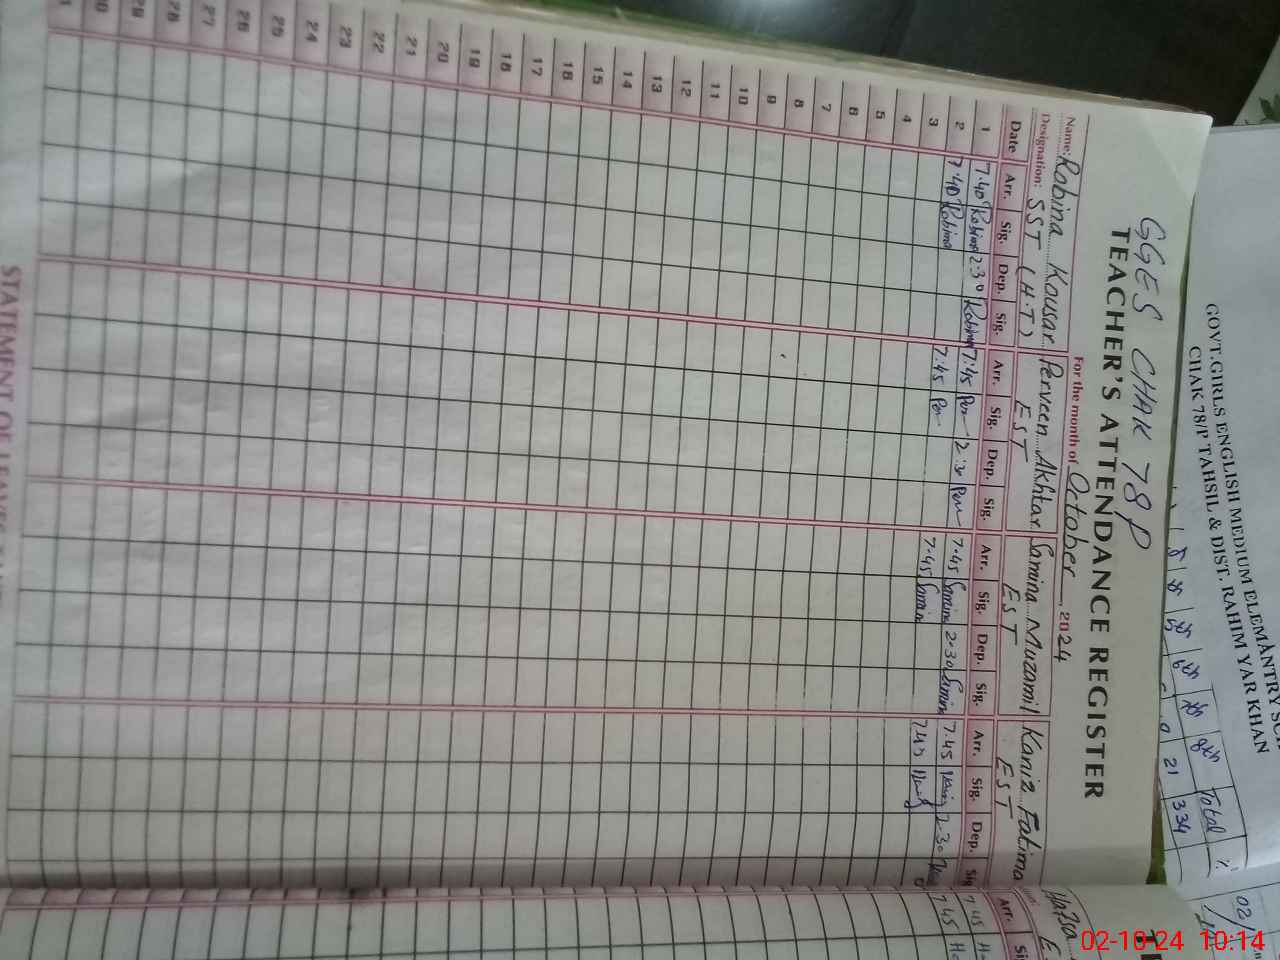 GGES CHAK 78P
TEACHER'S ATTENDANCE REGISTER
For the month of October, 2024
Name: Robina Kousar Perveen Akhtar Samina Muzamil Kaniz Fatima
Designation: SST (H.T) EST EST EST
Date Arr. Sig. Dep. Sig. Arr. Sig. Dep. Sig. Arr. Sig. Dep. Sig. Arr. Sig. Dep. Sig
1 7.40 Robina 2.30 Robina 7:45 Per 2:30 Per 7.45 Samina 2.30 Samina 7.45 2.30
2 7.40 Robina 7:45 Per 7.45 Samina 7.45
3
4
5
6
7
8
9
10
11
12
13
14
15
16
17
18
19
20
21
22
23
24
25
26
27
28
29
30
STATEMENT OF LEAVES
GOVT.GIRLS ENGLISH MEDIUM ELEMANTRY SCH
CHAK 78/P TAHSIL & DIST. RAHIM YAR KHAN
8th Total %
0 21 334
Hafsa
Arr.
7 45
7 45
02-10-24 10:14